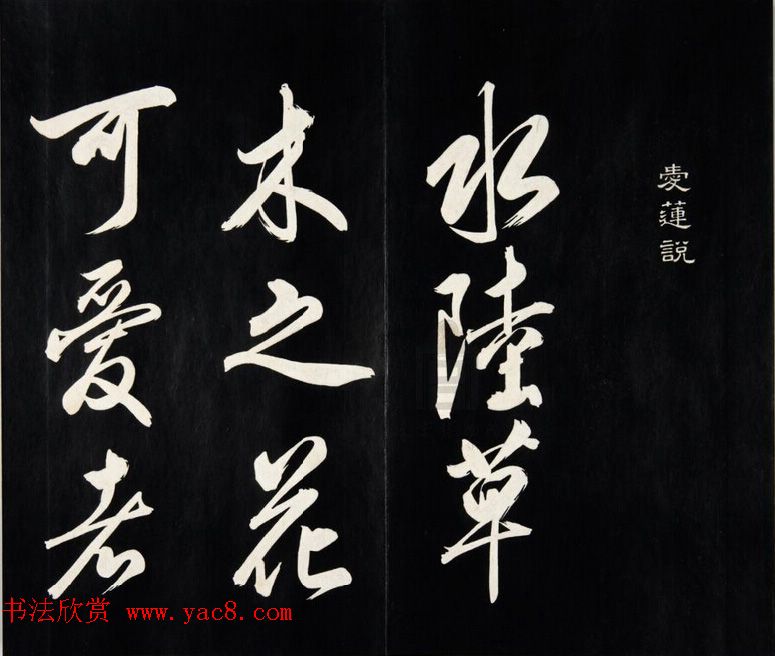 愛蓮説
水陸草
木之花
可愛者
书法欣赏 www.yac8.com